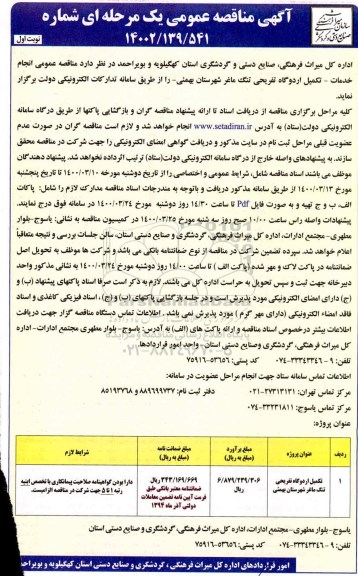 آگهی مناقصه عمومی یک مرحله ای شماره
۱۴۰۰۲/۱۳۹/۵۴۱
نوبت اول
اداره کل میراث فرهنگی، صنایع دستی و گردشگری استان کهگیلویه و بویراحمد در نظر دارد مناقصه عمومی انجام
خدمات - تکمیل اردوگاه تفریحی تنگ ماغر شهرستان بهمئی- را از طریق سامانه تدارکات الکترونیکی دولت برگزار
نماید.
کلیه مراحل برگزاری مناقصه از دریافت اسناد تا ارائه پیشنهاد مناقصه گران و بازگشایی پاکتها از طریق درگاه سامانه
الکترونیکی دولت(ستاد) به آدرس www.setadiran.ir انجام خواهد شد و لازم است مناقصه گران در صورت عدم
عضویت قبلی مراحل ثبت نام در سایت مذکور و دریافت گواهی امضای الکترونیکی را جهت شرکت در مناقصه محقق
سازند. به پیشنهادهای واصله خارج از درگاه سامانه الکترونیکی دولت(ستاد) ترتیب اثرداده نخواهد شد. پیشنهاد دهندگان
موظف می باشند اسناد مناقصه شامل، شرایط عمومی و اختصاصی را از تاریخ دوشنبه مورخه ۱۴۰۰/۰۳/۱۰ تا تاریخ پنجشنبه
مورخ ۱۴۰۰/۰۳/۱۳ از طریق سامانه مذکور دریافت و باتوجه به مندرجات اسناد مناقصه مدارکات لازم را شامل: پاکات
الف، ب و ج تهیه و به صورت فایل Pdf تا ساعت ۱۴/۳۰ روز دوشنبه مورخ ۱۴۰۰/۰۳/۲۴ در سامانه فوق درج نمایند.
پیشنهادات واصله راس ساعت ۱۰/۰۰ صبح روز سه شنبه مورخ ۱۴۰۰/۰۳/۲۵ در کمیسیون مناقصه به نشانی: یاسوج-بلوار
مطهری-مجتمع ادارات، اداره کل میراث فرهنگی، گردشگری و صنایع دستی استان، سالن جلسات بررسی و نتیجه متعاقباً
اعلام خواهد شد. سپرده تضمین شرکت در مناقصه از نوع ضمانتنامه بانکی می باشد و شرکت ها موظف به تحویل اصل
ضمانتنامه در پاکت لاک و مهر شده (پاکت الف) تا ساعت ۱۴/۰۰ روز دوشنبه مورخ ۱۴۰۰/۰۳/۲۴ به نشانی مذکور واحد
دبیرخانه جهت ثبت و سپس تحویل به حراست اداره کل می باشند. لازم به ذکر است صرفا اسناد پاکتهای پیشنهاد (ب) و
(ج) دارای امضای الکترونیکی مورد پذیرش است و در جلسه بازگشایی پاکتهای (ب) و (ج)، اسناد فیزیکی کاغذی و اسناد
فاقد امضاء الکترونیکی (دارای مهر گرم) مورد پذیرش نمی باشد. اطلاعات تماس دستگاه مناقصه گزار جهت دریافت
اطلاعات بیشتر درخصوص اسناد مناقصه و ارائه پاکت های (الف) به آدرس: یاسوج- بلوار مطهری مجتمع ادارات- اداره
کل میراث فرهنگی، گردشگری وصنایع دستی استان-واحد امور قراردادها.
تلفن: ۹-۰۷۴-۳۳۳۴۳۳۴۶ کد پستی: ۵۳۶۵۶-۷۵۹۱۶
اطلاعات تماس سامانه ستاد جهت انجام مراحل عضویت در سامانه:
مرکز تماس تهران: ۲۷۳۱۳۱۳۱-۰۲۱ دفتر ثبت نام: ۸۸۹۶۹۷۳۷ و ۸۵۱۹۳۷۶۸
مرکز تماس یاسوج: ۳۳۲۳۱۸۱۱-۰۷۴
عنوان پروژه:
ردیف عنوان پروژه مبلغ برآورد (مبلغ به ریال) مبلغ ضمانت نامه (مبلغ به ریال) شرایط لازم
۱ تکمیل اردوگاه تفریحی تنگ ماغر شهرستان بهمئی ۶/۸۷۹/۲۳۹/۳۰۶ ریال ۳۴۳/۱۶۹/۶۶۹ ریال ضمانتنامه معتبر بانکی طبق فرمت آیین نامه تضمین معاملات دولتی آذر ماه ۱۳۹۴ دارا بودن گواهینامه صلاحیت پیمانکاری با تخصص ابنیه رتبه ۱ تا ۵ جهت شرکت در مناقصه الزامیست.
یاسوج-بلوار مطهری-مجتمع ادارات، اداره کل میراث فرهنگی، گردشگری و صنایع دستی استان
تلفن: ۹-۰۷۴-۳۳۳۴۳۳۴۶ کد پستی: ۵۳۶۵۶-۷۵۹۱۶
امور قراردادهای اداره کل میراث فرهنگی، گردشگری و صنایع دستی استان کهگیلویه و بویراحمد